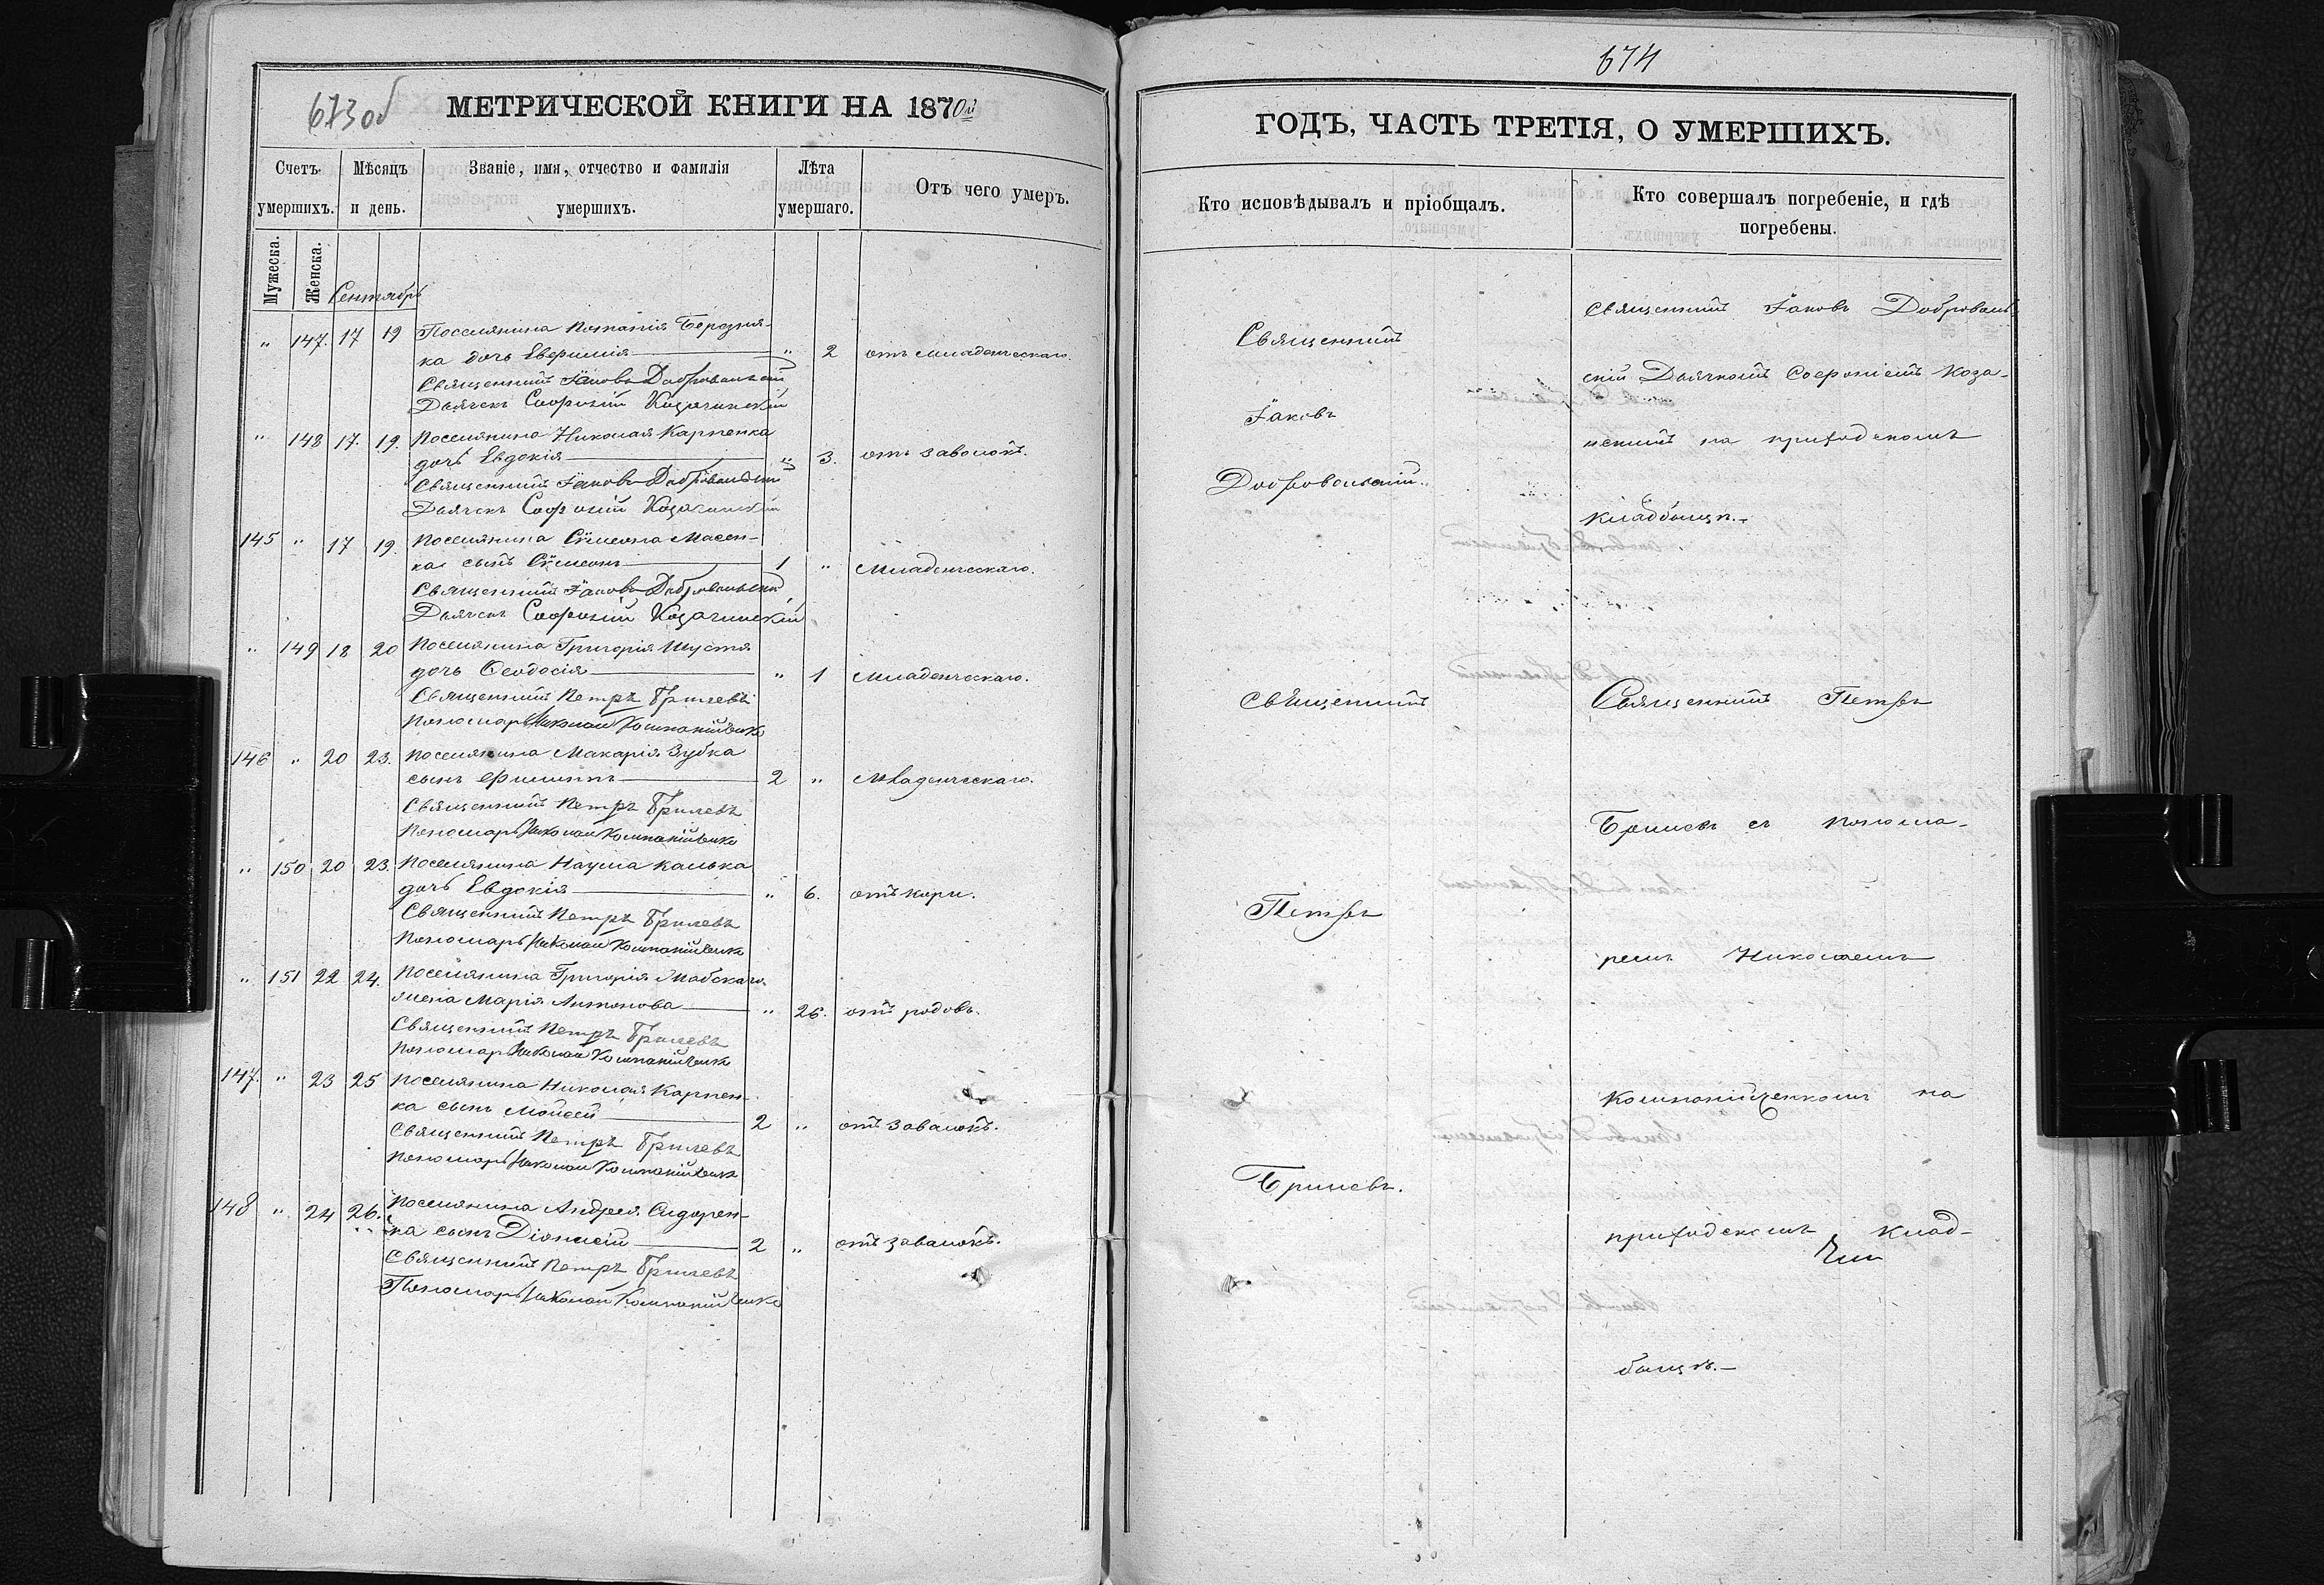 673об
МЕТРИЧЕСКОЙ КНИГИ НА 1870й
Счетъ умершихъ.
Мѣсяцъ и день.
Званіе, имя, отчество и фамилія умершихъ.
Лѣта умершаго.
Отъ чего умеръ.
Мужеска.
Женска.
Сентябрь
" 147. 17 19 Поселянина Потапія Бородня-
ка дочь Евфимія " 2 отъ младенческаго.
Священникъ Іаковъ Добровольскій
Дьячекъ Софроній Козачинскій
" 148 17. 19. Поселянина Николая Карпенка
дочь Евдокія " 3. отъ заволокъ.
Священникъ Іаковъ Добровольскій
Дьячекъ Софроній Козачинскій
145 " 17 19. Поселянина Сѵмеона Масен-
ка сынъ Сѵмеонъ 1 " Младенческаго.
Священникъ Іаковъ Добровольскій
Дьячекъ Софроній Козачинскій
" 149 18 20 Поселянина Григорія Шустя
дочь Ѳеодосія " 1 Младенческаго.
Священникъ Петръ Брилевъ
Пономарь Николай Компанійченко
146 " 20 23. Поселянина Макарія Зубка
сынъ Филиппъ 2 " Младенческаго.
Священникъ Петръ Брилевъ
Пономарь Николай Компанійченко
" 150 20 23. Поселянина Наума Калька
дочь Евдокія " 6. отъ кори.
Священникъ Петръ Брилевъ
Пономарь Николай Компанійченко
" 151 22 24. Поселянина Григорія Мабскаго
жена Марія Антонова " 26. отъ родовъ.
Священникъ Петръ Брилевъ
Пономарь Николай Компанійченко
147. " 23 25 Поселянина Николая Карпен-
ка сынъ Моисей 2 " отъ завалокъ.
Священникъ Петръ Брилевъ
Пономарь Николай Компанійченко
148 " 24 26. Поселянина Андрея Сидорен-
ка сынъ Діонисій 2 " отъ завалокъ.
Священникъ Петръ Брилевъ
Пономарь Николай Компанійченко
674
ГОДЪ, ЧАСТЬ ТРЕТІЯ, О УМЕРШИХЪ.
Кто исповѣдывалъ и пріобщалъ.
Кто совершалъ погребеніе, и гдѣ погребены.
Священникъ
Іаковъ
Добровольскій.
Священникъ Іаковъ Доброволь
скій Дьячкомъ Софроніемъ Коза-
нскимъ на приходскомъ
кладбищѣ.
Священникъ
Петръ
Брилевъ.
Священникъ Петръ
Брилевъ съ Понома-
ремъ Николаемъ
Компанійченкомъ на
приходскомъ клад-
бищѣ.